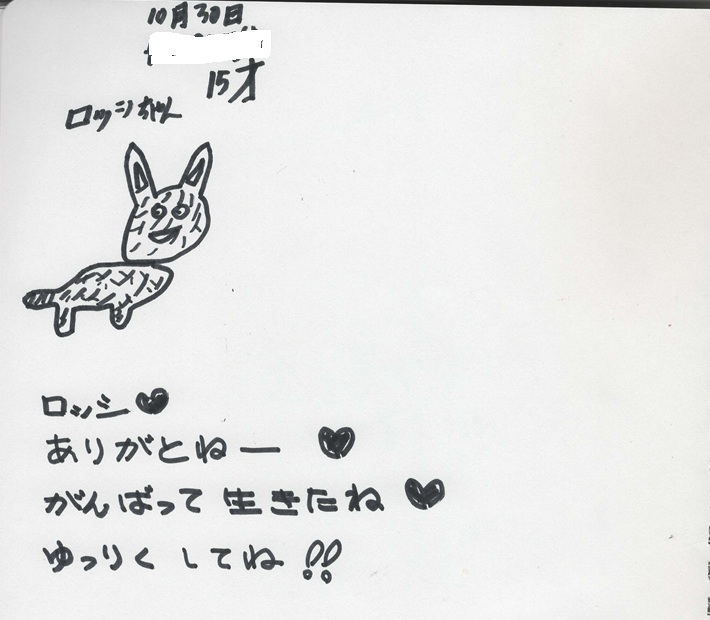 10月30日
15才
ロッシちゃん
ロッシ♥
ありがとねー ♥
がんばって 生きたね ♥
ゆっりく してね !!